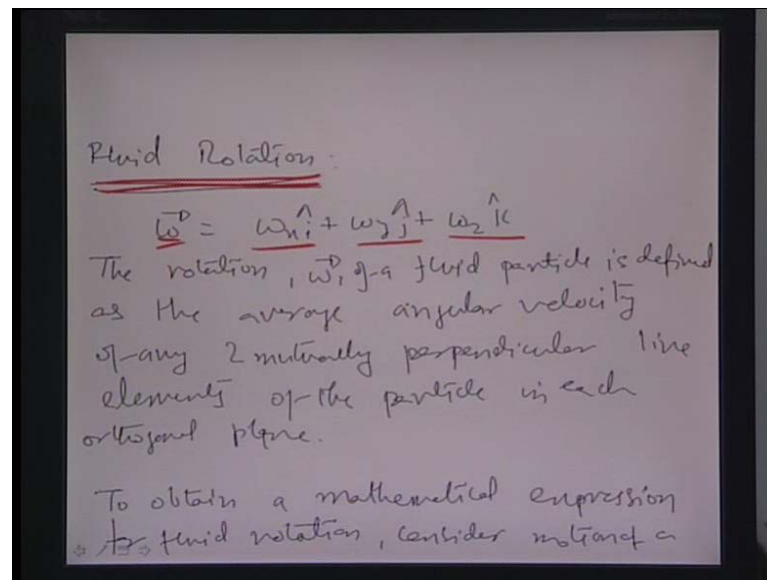 Fluid Rotation:
ω⃗ = ωₓî + ω_yĵ + ω_z k̂
The rotation, ω⃗, of a fluid particle is defined
as the average angular velocity
of any 2 mutually perpendicular line
elements of the particle in each
orthogonal plane.
To obtain a mathematical expression
for fluid rotation, consider motion of a